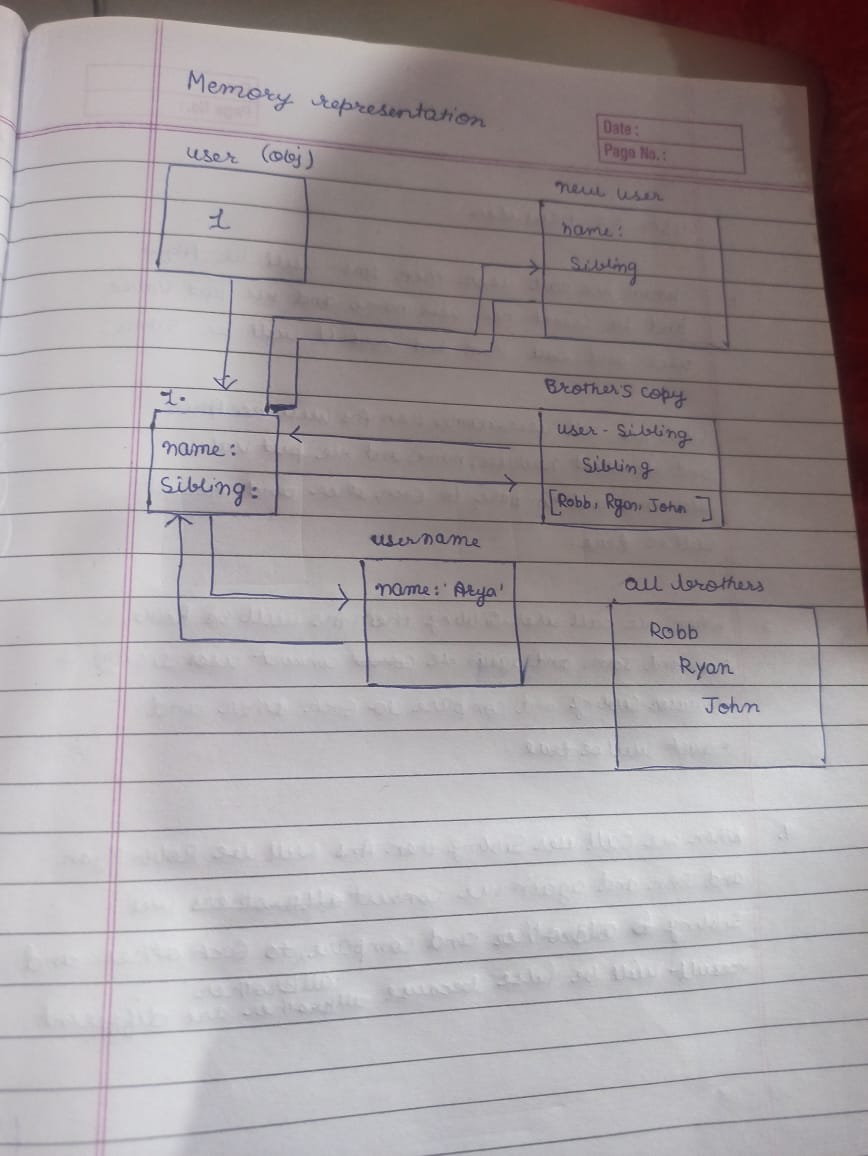 Memory representation
Date :
Page No. :
user (obj)
1
new user
name :
Sibling
1.
name :
Sibling :
Brother's copy
user - Sibling
Sibling
[Robb, Ryan, John ]
username
name : 'Arya'
all brothers
Robb
Ryan
John